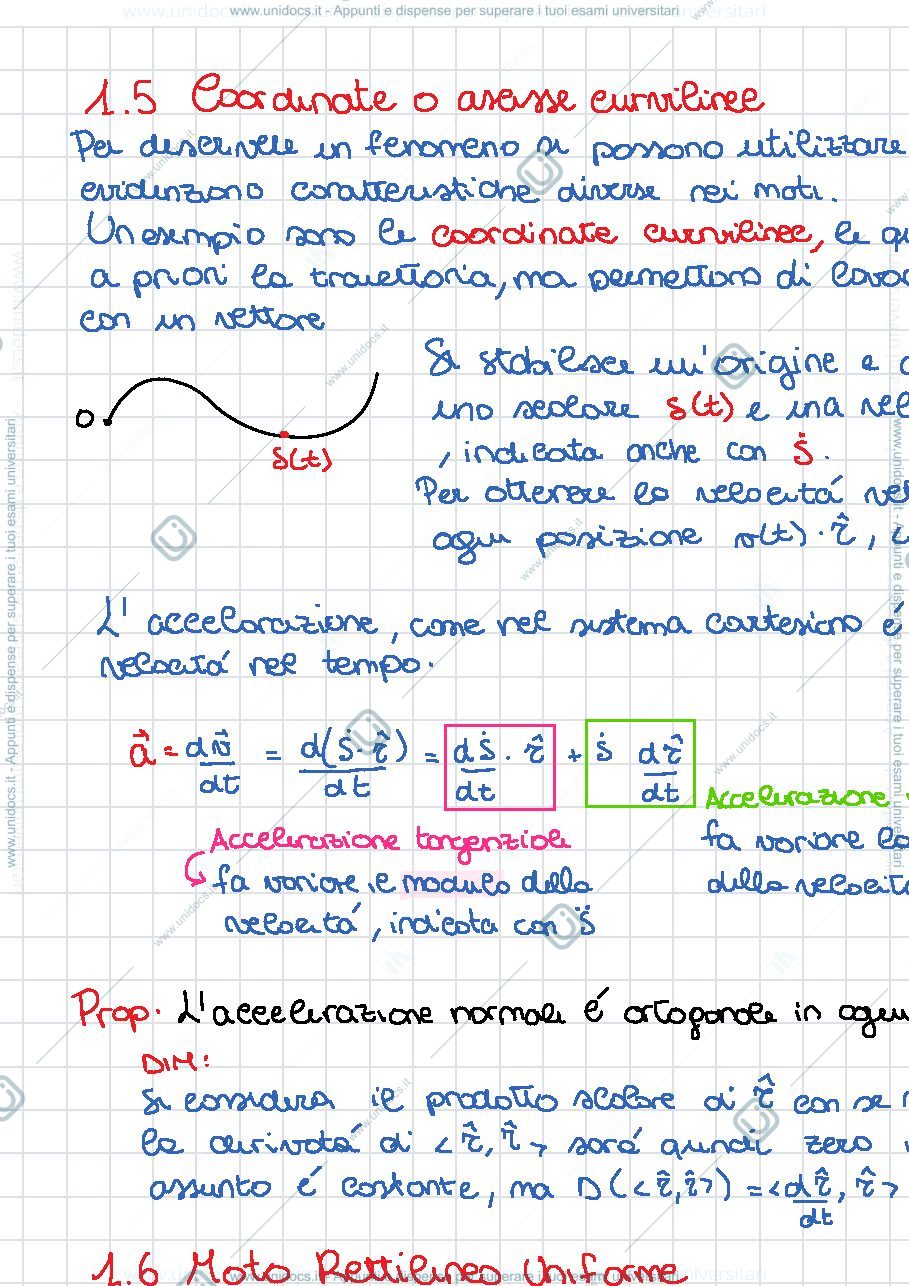 www.unidocs.it - Appunti e dispense per superare i tuoi esami universitari
1.5 Coordinate o ascisse curvilinee
Per descrivere un fenomeno si possono utilizzare
evidenziano caratteristiche diverse nei moti.
Un esempio sono le coordinate curvilinee, le qu
a priori la traiettoria, ma permettono di lavor
con un vettore
Si stabilisce un'origine e
O
uno scalare s(t) e una vel
s(t)
, indicata anche con ṡ.
Per ottenere la velocitá ve
ogni posizione v(t) · τ̂,
L'accelerazione, come nel sistema cartesiano é
velocitá nel tempo.
a⃗ = dv⃗/dt = d(ṡ · τ̂)/dt = dṡ/dt · τ̂ + ṡ dτ̂/dt
Accelerazione
Accelerazione tangenziale
fa variare la
fa variare il modulo della
della velocit
velocitá, indicata con s̈
Prop. L'accelerazione normale é ortogonale in ogni
DIM:
Si considera il prodotto scalare di τ̂ con se
la derivata di <τ̂, τ̂> sará quindi zero
assunto é costante, ma D(<τ̂, τ̂>) = <dτ̂/dt, τ̂>
1.6 Moto Rettilineo Uniforme
www.unidocs.it - Appunti e dispense per superare i tuoi esami universitari